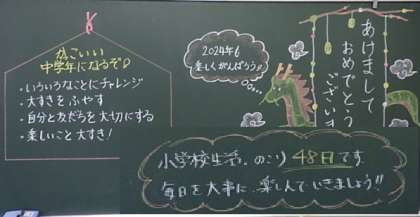 かっこいい
中学年になるぞ♪
・いろいろなことにチャレンジ
・大すきをふやす
・自分と友だちを大切にする
・楽しいこと大すき!
2024年も
楽しくがんばろう♪
あけまして
おめでとう
ございます
小学校生活、のこり48日です
毎日を大事に、楽しんでいきましょう!!